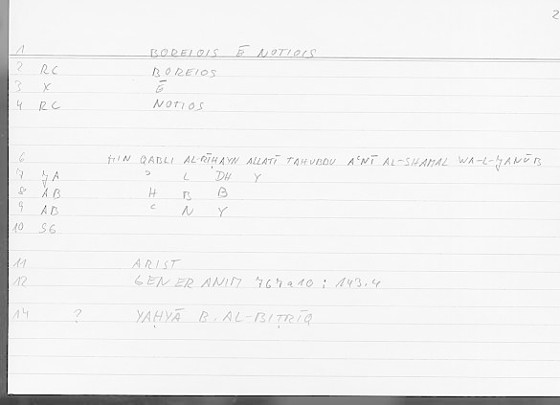 2
1 BOREIOIS Ē NOTIOIS
2 RC BOREIOS
3 X Ē
4 RC NOTIOS
6 MIN QABLI AL-RĪḤAYN ALLATĪ TAHUBBU AʿNĪ AL-SHAMAL WA-L-ǦANŪB
7 ǦA ʾ L DH Y
8 AB H B B
9 AB ʿ N Y
10 SG
11 ARIST
12 GENER ANIM 767a10 : 143.4
14 ? YAḤYĀ B. AL-BIṬRĪQ